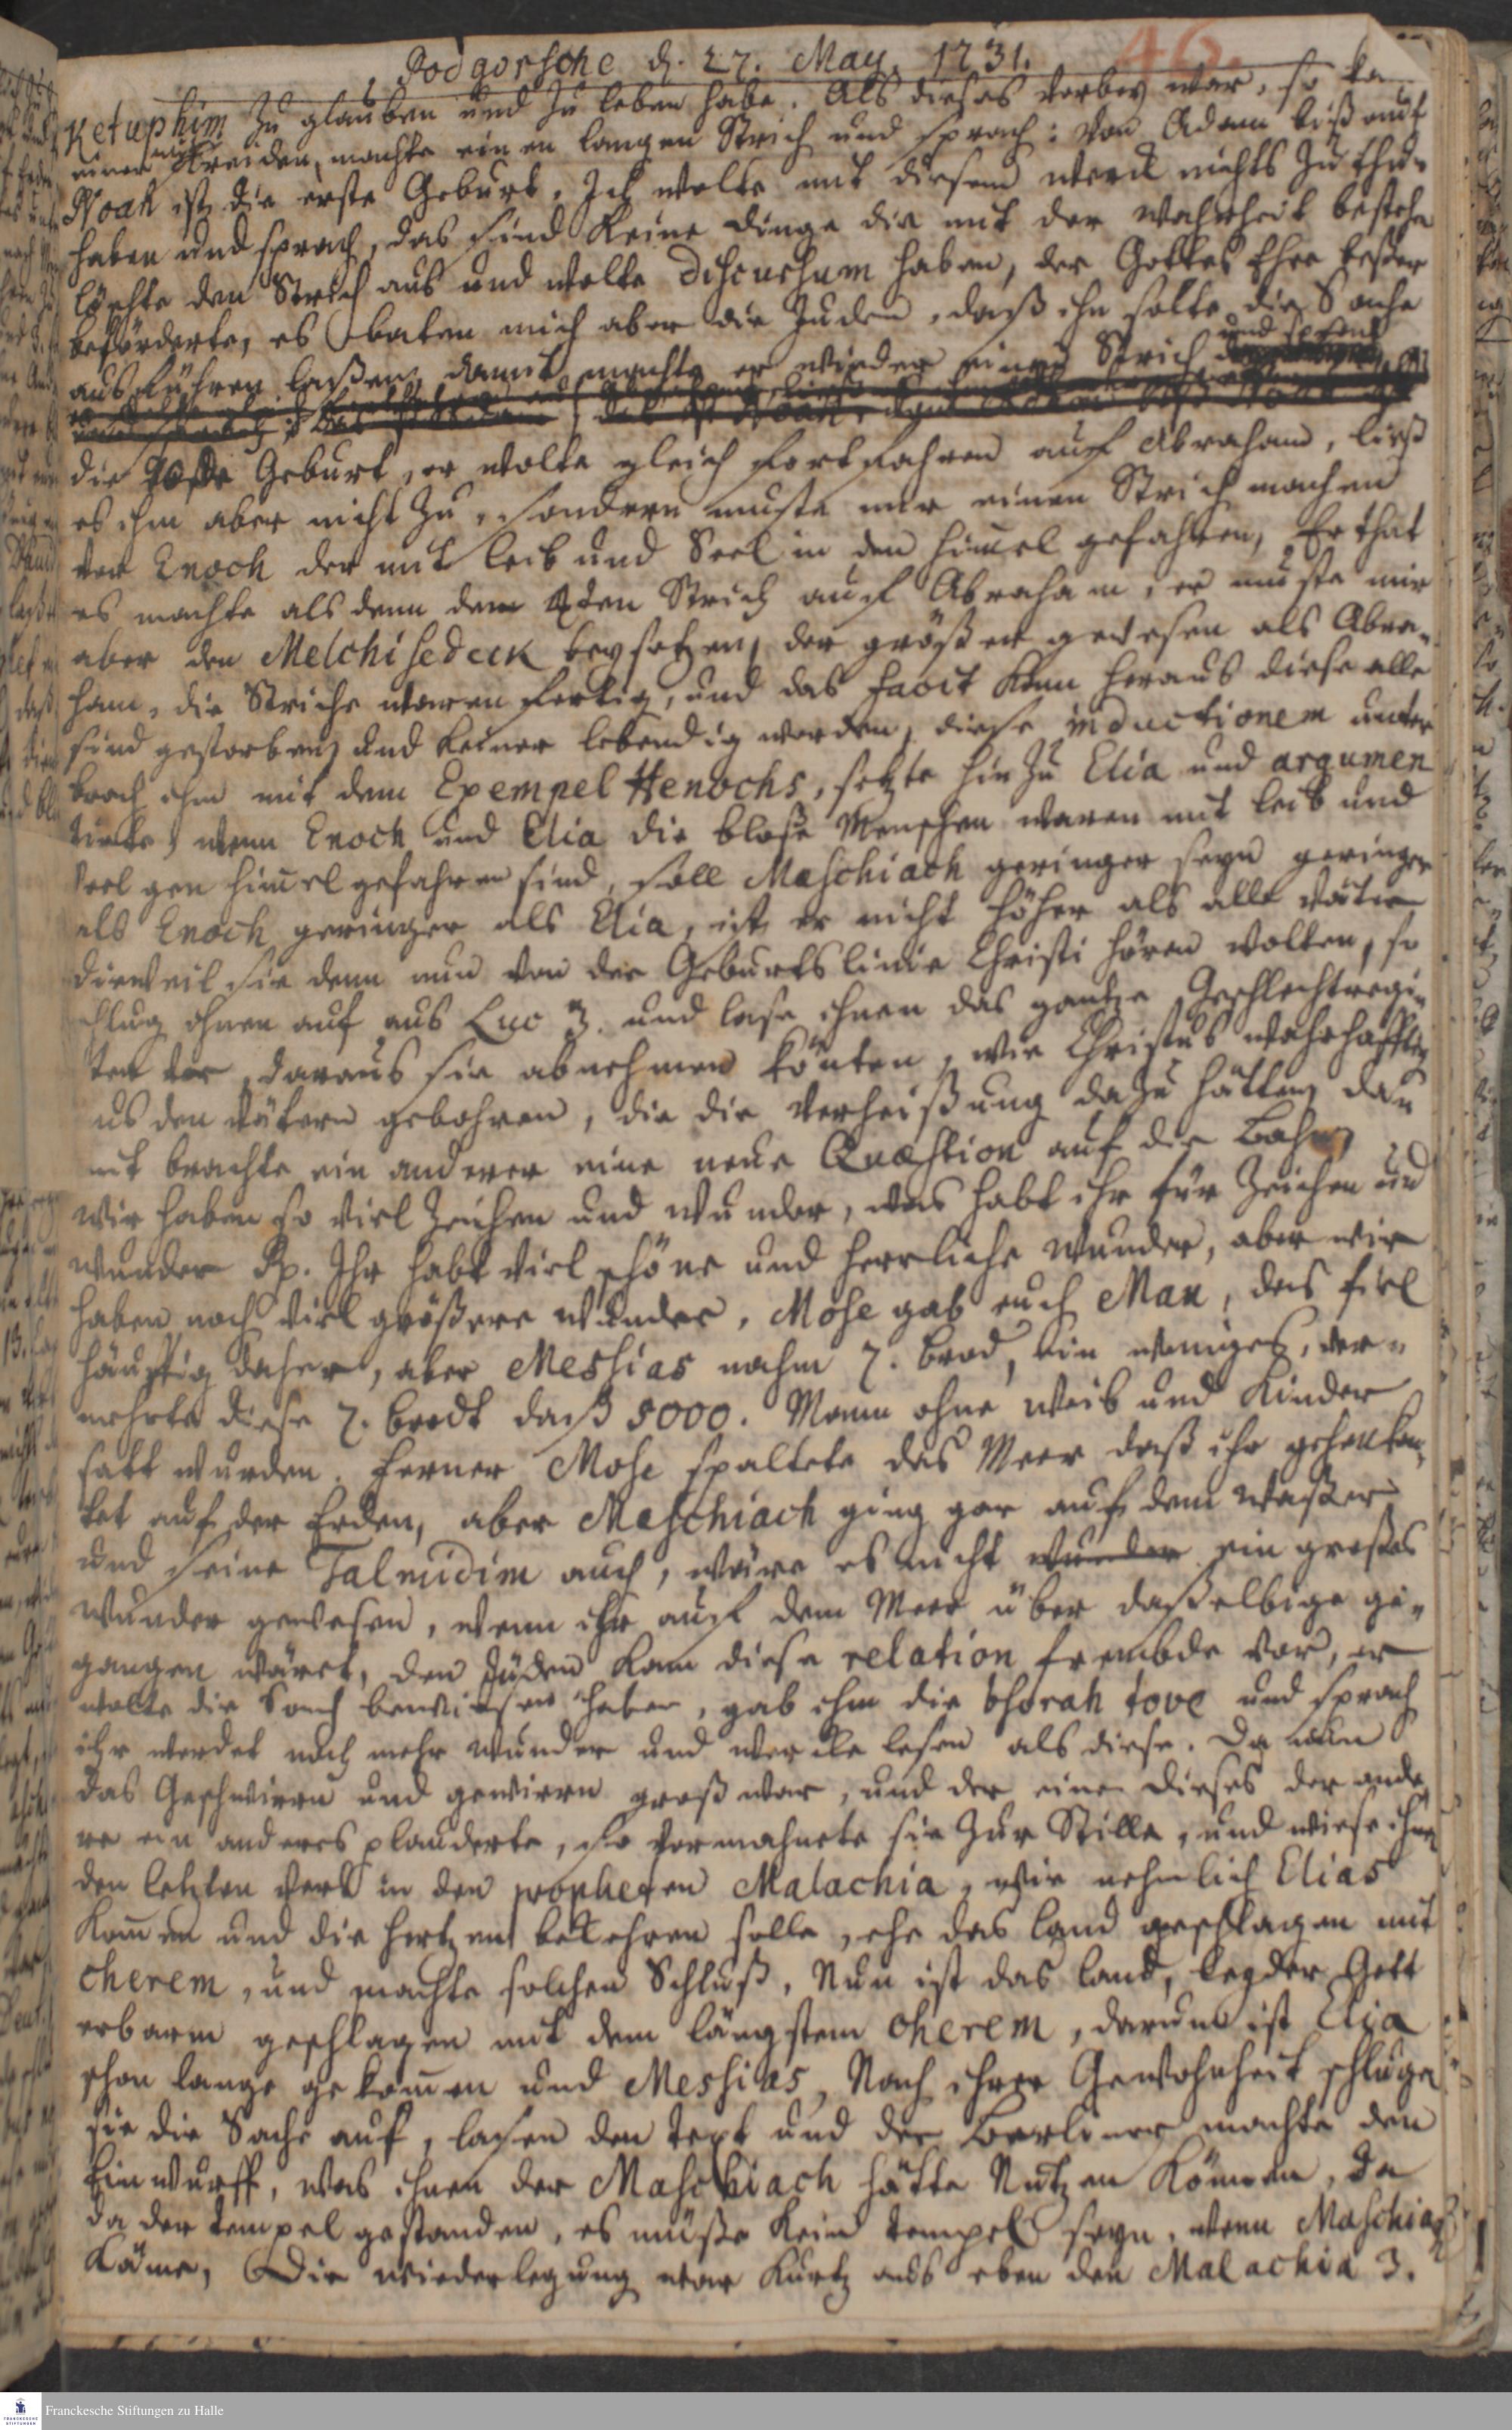 Podgorsche d. 27. May. 1731.
46.
Ketuphim zu glauben und zu leben habe. Als dieses vorbey war, so ka
einer mit Kreiden, machte einen langen Strich und sprach: von Adam biß auf
Noah ist die erste Geburt. Ich wolte mit diesem nichts zu thun
haben und sprach, das sind keine dinge die mit der Wahrheit bestehe
löschte den Strich aus und wolte Discursum haben, der Gottes Ehre beßer
beförderte, es baten mich aber die Juden, daß ihn solte die Sache
ausführen laßen, damit machte er wieder einen Strich und sprach
die Geburt, er wolte gleich fortfahren auf Abraham, ließ
es ihm aber nicht zu, sondern muste mir einen Strich machen
von Enoch der mit leib und Seel in den himel gefahren, Er that
es machte als denn den 4ten Strich auf Abraham, er muste mir
aber den Melchisedeck beysetzen, der größer gewesen als Abra-
ham, die Striche waren fertig, und das facit kam heraus diese alle
sind gestorben, und keiner lebendig worden, diese inductionem unter
brach ihm mit dem Exempel Henochs, setzte hinzu Elia und argumen
tirte, wenn Enoch und Elia die bloße Menschen waren mit leib und
Seel gen himel gefahren sind, soll Maschiach geringer seyn geringer
als Enoch geringer als Elia, ist er nicht höher als alle väter
dieweil sie denn nun von der Geburtslinie Christi hören wolten, so
schlug ihnen auf aus Luc 3. und lase ihnen das gantze Geschlechtregi-
ster vor, daraus sie abnehmen könten, wie Christus wahrhafftig
aus den vätern gebohren, die die Verheißung dazu hätten, da-
mit brachte ein anderer eine neue Quæstion auf die Bahn,
wir haben so viel Zeichen und Wunder, was habt ihr für Zeichen und
Wunder Rp. Ihr habt viel schöne und herrliche Wunder, aber wir
haben noch viel größere Wunder, Mose gab euch Man, das fiel
häuffig daher, aber Messias nahm 7. brod, ein weniges, ver-
mehrte diese 7. brodt daß 5000. Mann ohne Weib und Kinder
satt wurden. Ferner Mose spaltete das Meer daß ihr
tet auf der Erden, aber Maschiach ging gar auf dem Waßer
und seine Talmidim auch, wäre es nicht wunder ein großes
Wunder gewesen, wenn ihr auf dem Meer über daßelbige ge-
gangen wäret, den Juden kam diese relation frembde vor, er
wolte die Sach bewiesen haben, gab ihm die bhorah tove und sprach
ihr werdet noch mehr Wunder und wercke lesen als diese. Da nun
das Geschwirr und gewirre groß war, und der eine dieses der ande
re ein anderes plauderte, so vermahnete sie zur Stille, und wiese ihnen
den letzten Vers in den propheten Malachia, wie nehmlich Elias
komen und die hertzen bekehren solle, ehe das land geschlagen mit
cherem, und machte solchen Schluß, Nun ist das land, leyder Gott
erbarm geschlagen mit dem längstem cherem, darum ist Elia
schon lange gekomen und Messias, Nach ihrer Gewohnheit schlugen
sie die Sache auf, lasen den text und der Berliner machte den
Einwurff, was ihnen der Maschiach hätte Nutzen können, da
da der tempel gestanden, es müße kein tempel seyn, wenn Maschiach
käme, Die wiederlegung war kurtz aus eben den Malachia 3.
Franckesche Stiftungen zu Halle